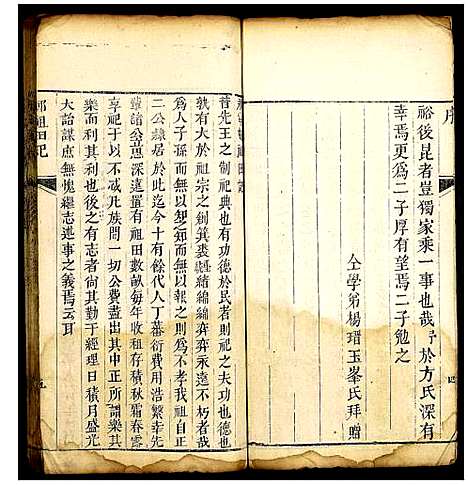 序
裕後昆者豈獨家乘一事也哉予於方氏深有
幸焉更爲二子厚有望焉二子勉之
仝學弟楊瑨玉峯氏拜贈
四
昔先王之制祀典也有功德於民者則祀之夫功也
孰有大於祖宗之創箕裘繼緒綿綿弈弈永遠不朽者哉
爲人子孫而無以知之知而無以報之則爲不孝我祖
二公隱居於此迄今十有餘代人丁蕃衍費用浩繁幸先
公深遠置有祖田數畝每年收租存積秋霜春露
享祀於以不减凡族間一切公費盡出其中正所謂樂其
樂而利其利也後有志者尙其勤于經理日積月盛光
大詒謀庶無愧繼志述事之義焉云耳
祖田記
五